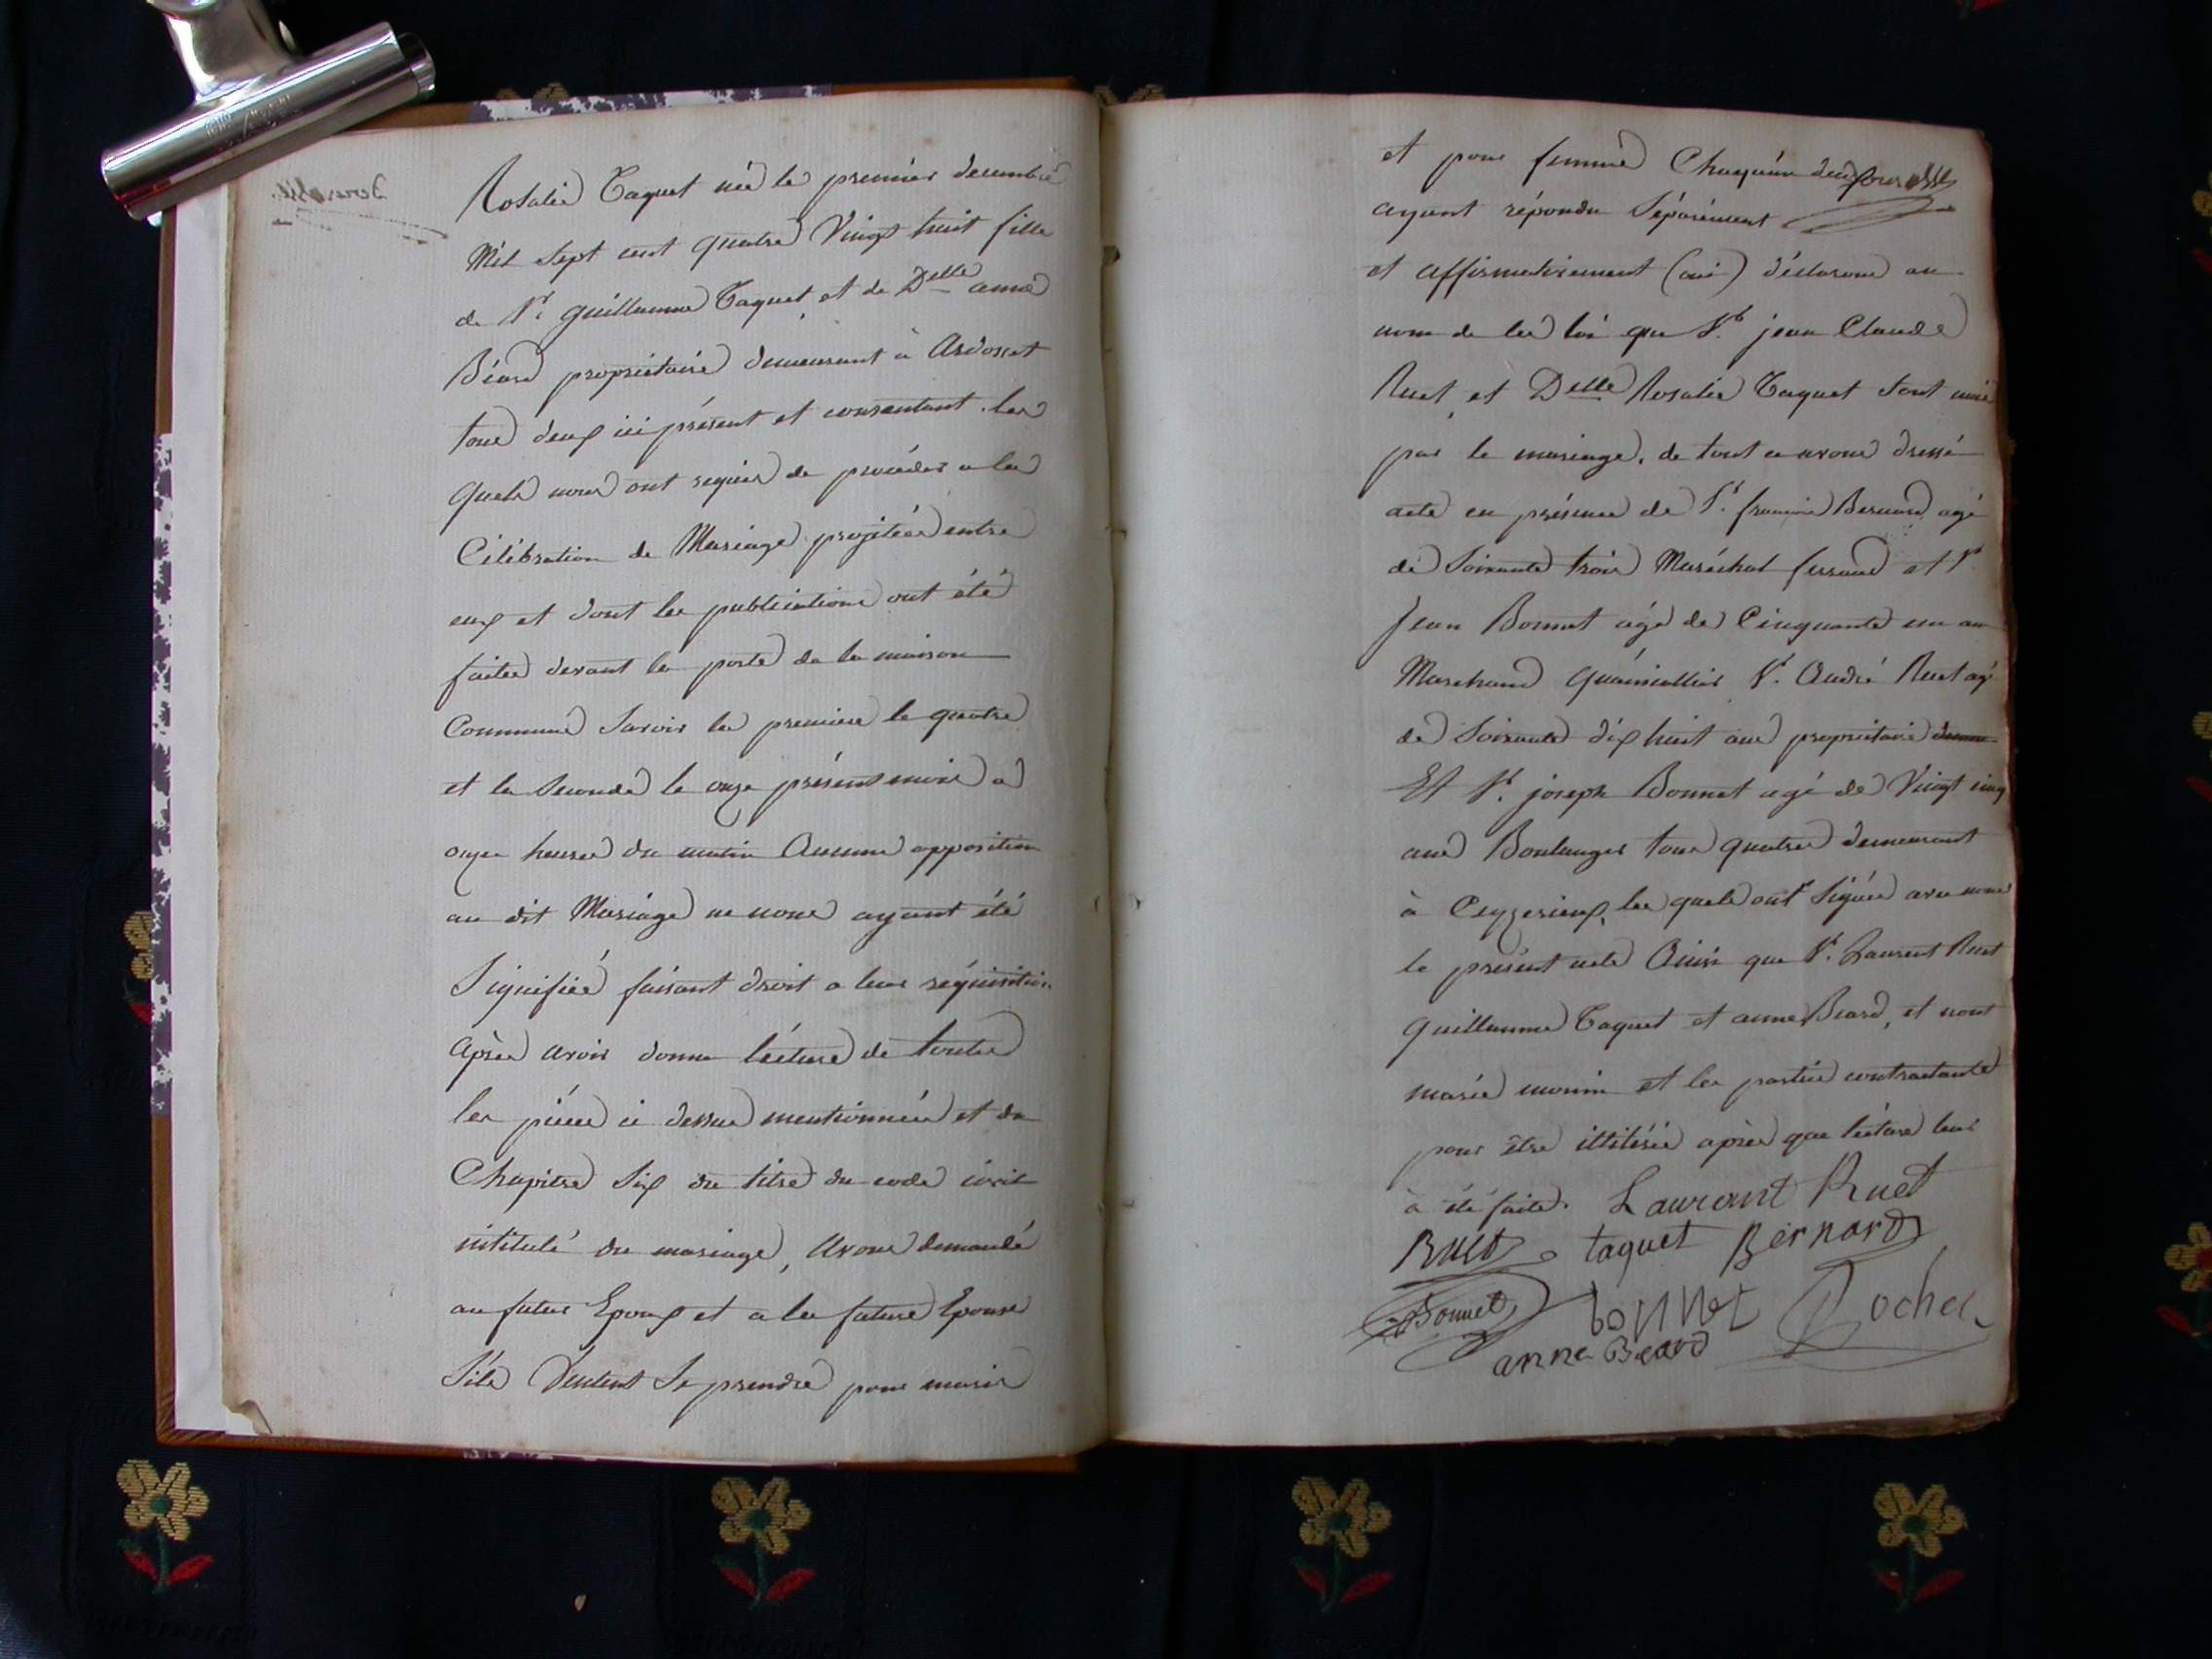 Rosalie Taquet née le premier decembre
Mil sept cent quatre Vingt huit fille
de Sr. guillaume Taquet et de Delle anne
Béard propriétaire demeurant à Ardosset
tous deux ici présent et consentant. les
quels nous ont requis de procéder a la
Célébration de Mariage projetée entre
eux et dont les publications ont été
faites devant la porte de la maison
Commune Savoir la premiere le quatre
et la Seconde le onze présent mois a
onze heures du matin Aucune opposition
au dit Mariage ne nous ayant été
Signifiée faisant droit a leur réquisition
Après avoir donné lécture de toutes
les pièces ci dessus mentionnées et du
Chapitre Six du titre du code civil
intitulé du mariage, Avons demandé
au futur Epoux et a la future Epouse
S'ils Veulent Se prendre pour mari
et pour femme Chaquún deux
ayant répondu Séparément
et affirmativement (oui) déclarons au
nom de la loi que Sr. jean Claude
Ruet et Delle Rosalie Taquet Sont unis
par le mariage, de tout ce avons dressé
acte en présence de Sr. françois Bernard agé
de Soixante trois Maréchal ferrand et Sr.
Jean Bonnet agé de Cinquante un an
Marchand Sr. André Ruet agé
de Soixante dix huit ans propriétaire
Et Sr. joseph Bonnet agé de Vingt cinq
ans Boulanger tous quatre demeurant
à Ceyzerieux, les quels ont Signés avec nous
le présent acte Ainsi que Sr. Laurent Ruet
guillaume Taquet et anne Beard, et nont
les parties contractante
pour être ittitérés après que lécture leur
à été faite. Laurant Ruet
Ruet taquet Bernard
Bonnet bonnet Rochel
anne Beard